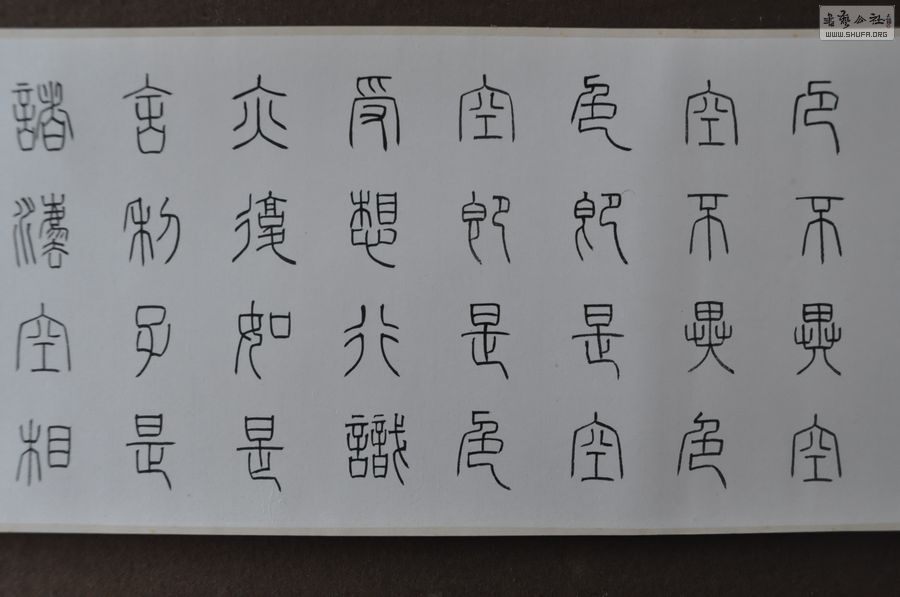 色不異空
空不異色
色即是空
空即是色
受想行識
亦復如是
舍利子是
諸灋空相
書藝公社
WWW.SHUFA.ORG